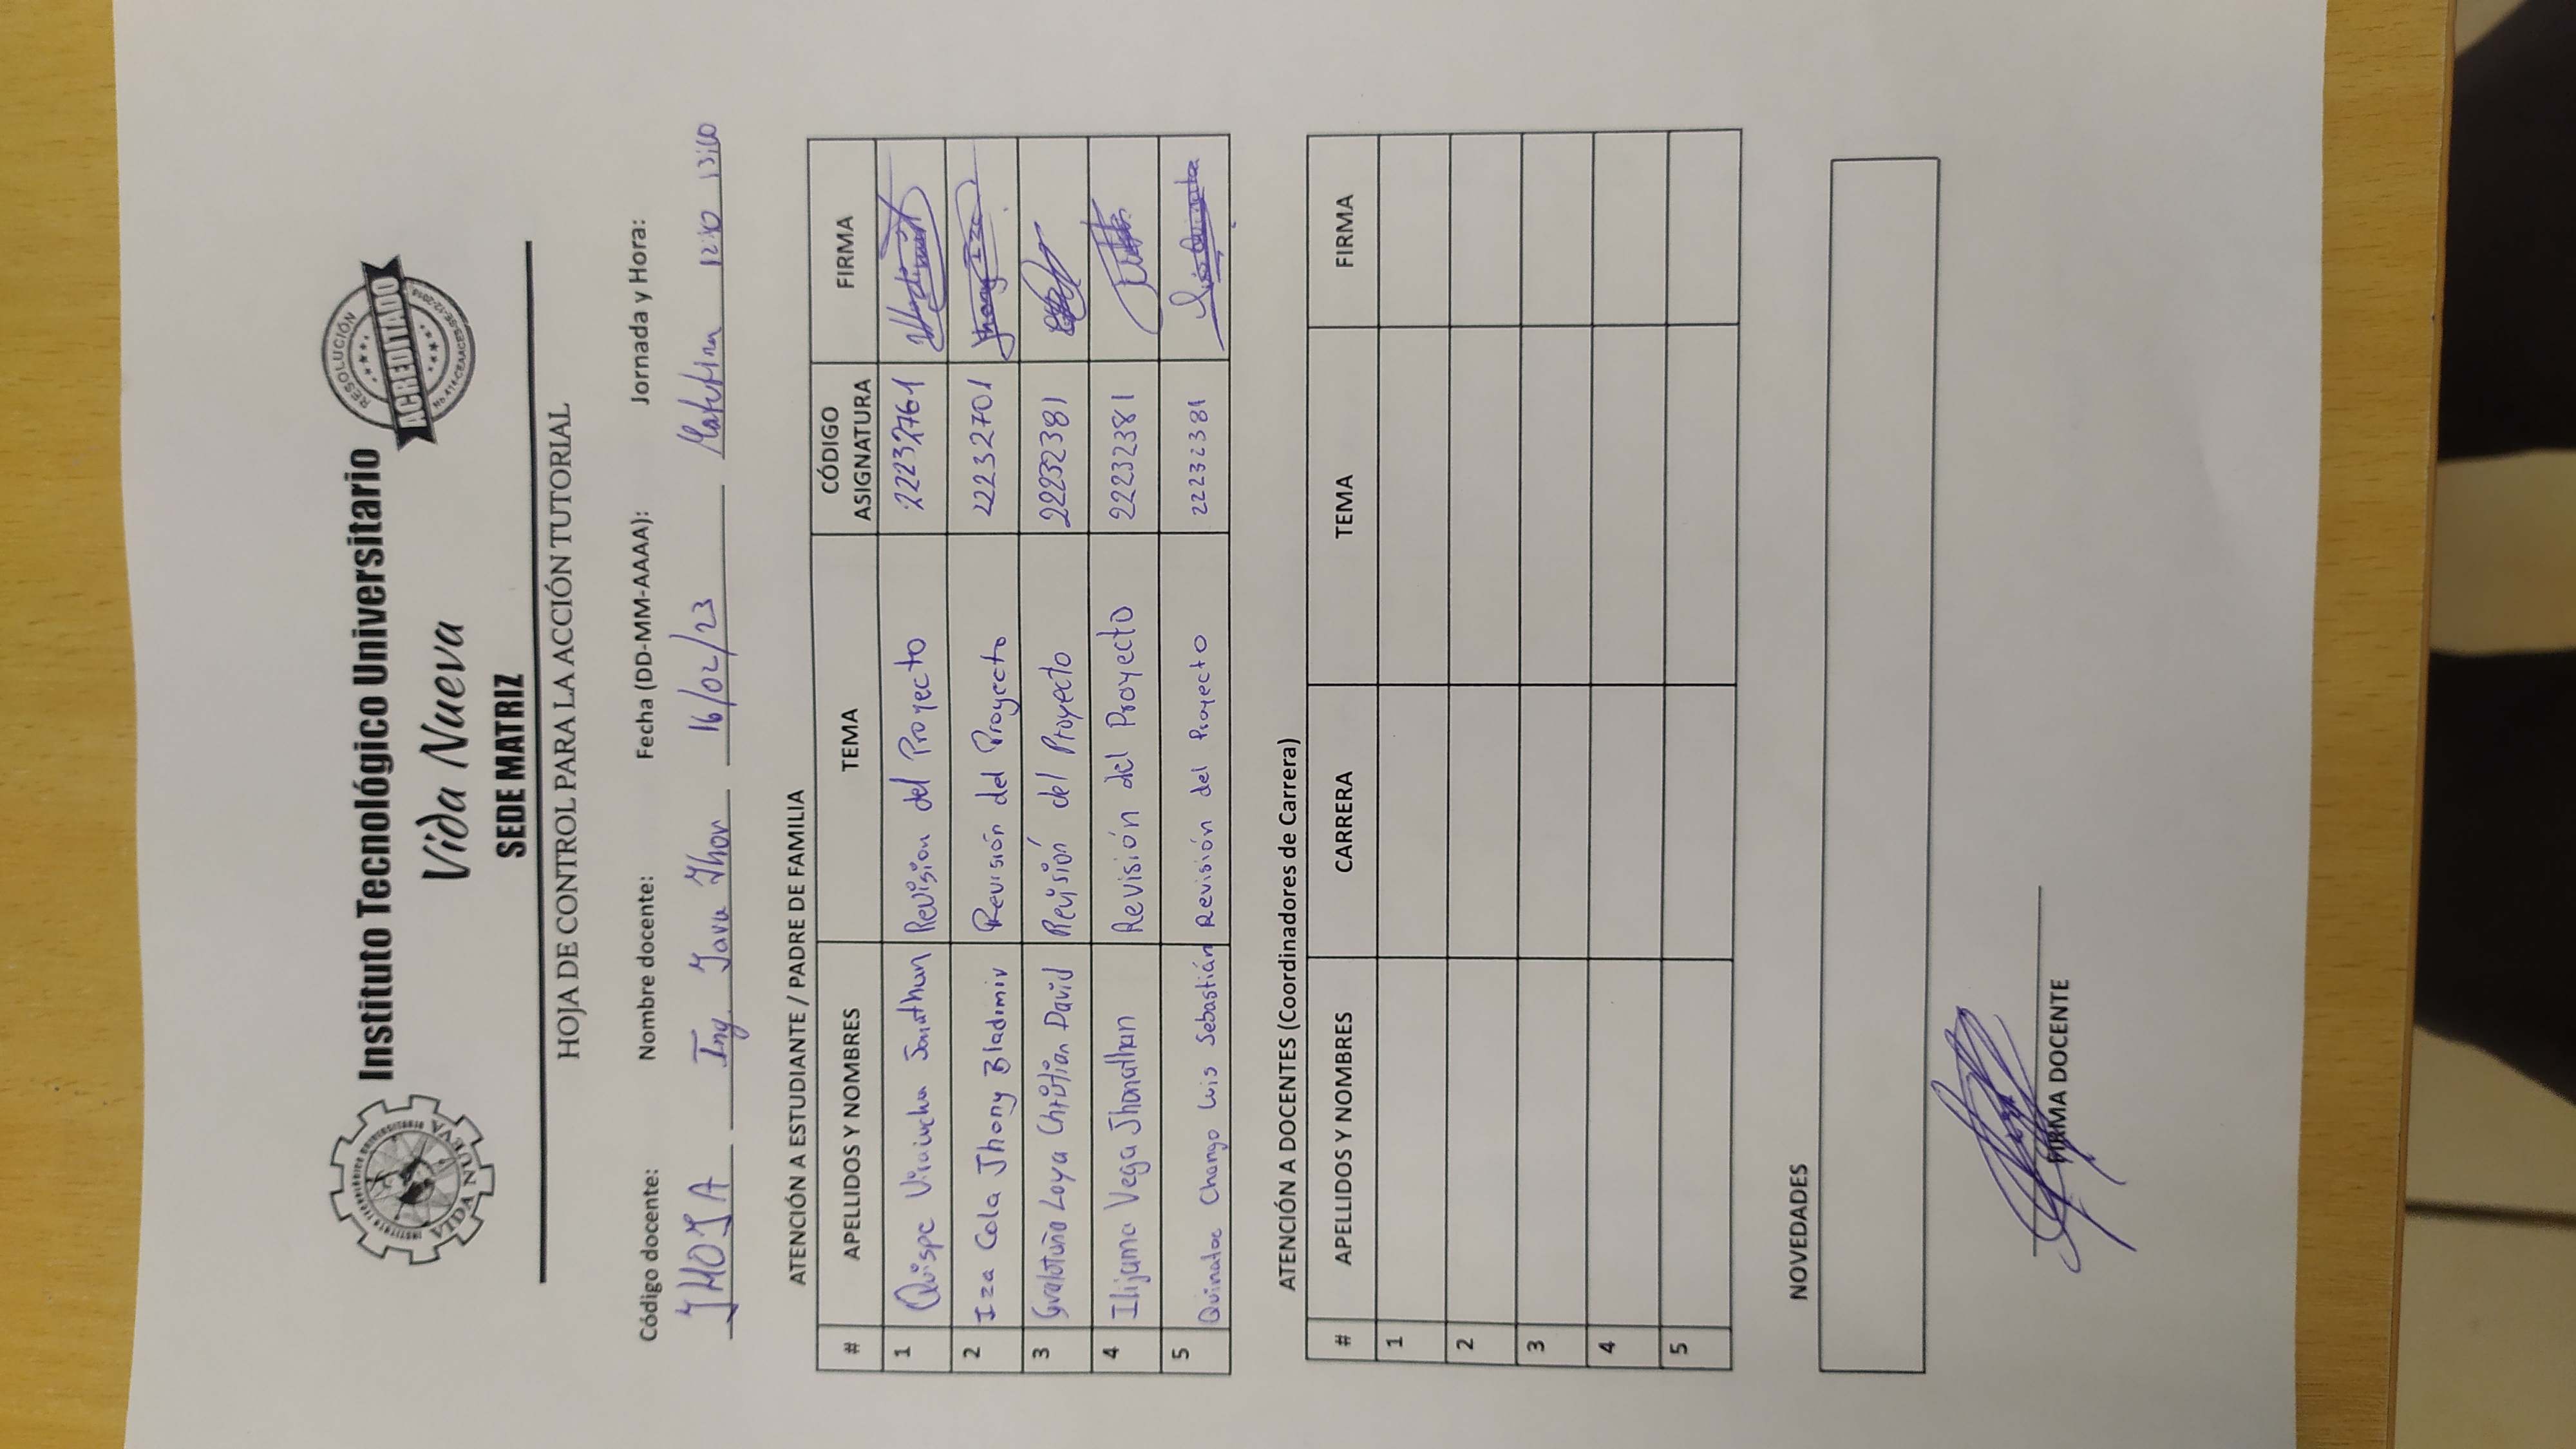 Instituto Tecnológico Universitario
Vida Nueva
SEDE MATRIZ
VIDA NUEVA
RESOLUCIÓN
ACREDITADO
No 414-CEAACES-SE-12-2014
HOJA DE CONTROL PARA LA ACCIÓN TUTORIAL
Código docente: Nombre docente: Fecha (DD-MM-AAAA): Jornada y Hora:
JHOJA Ing. Java Jhon 16/02/23 Matutina 13:00
ATENCIÓN A ESTUDIANTE / PADRE DE FAMILIA
# APELLIDOS Y NOMBRES TEMA CÓDIGO ASIGNATURA FIRMA
1 Quispe Jonathan Revision del Proyecto 22232761
2 Iza Cola Jhony Bladimir Revisión del Proyecto 22232701 Jhony Iza
3 Gualotuña Loya Christian David Revisión del Proyecto 22232381
4 Ilijama Vega Jhonathan Revisión del Proyecto 22232381
5 Quinatoa Chango Luis Sebastián Revisión del Proyecto 22232381
ATENCIÓN A DOCENTES (Coordinadores de Carrera)
# APELLIDOS Y NOMBRES CARRERA TEMA FIRMA
1
2
3
4
5
NOVEDADES
FIRMA DOCENTE